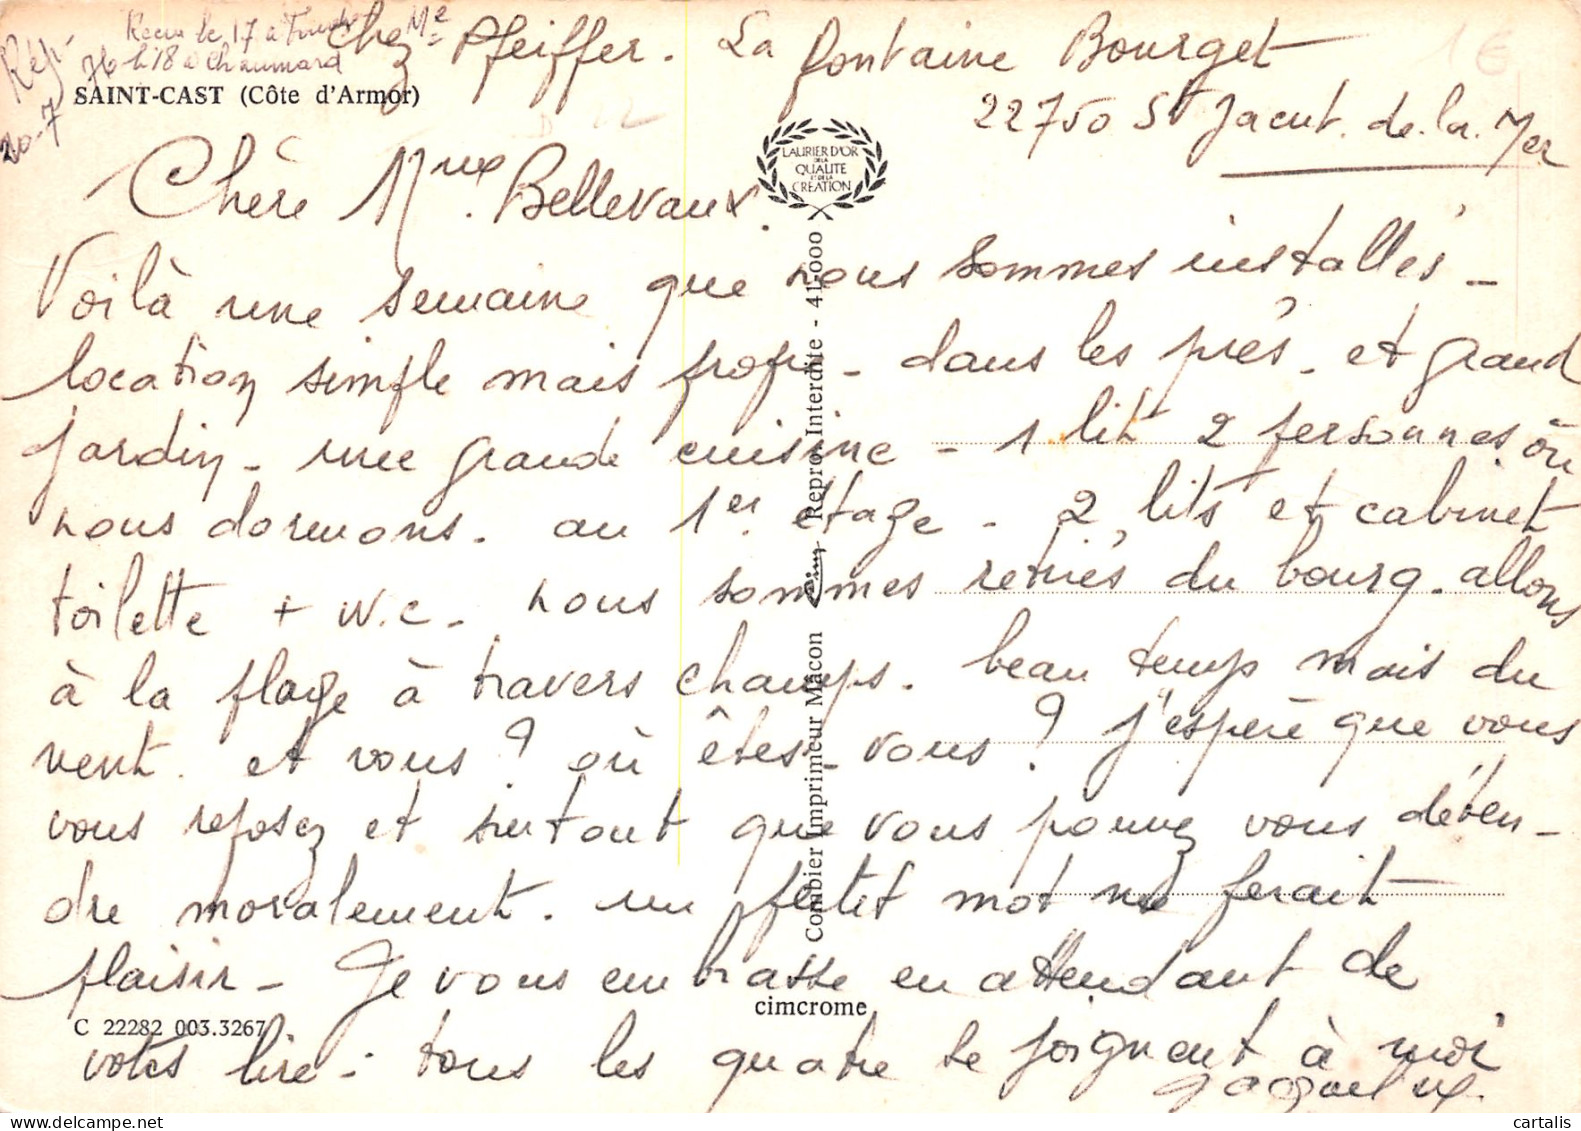 Rép. 20-7
Recu le 17 a
le 18 a Chaumard
Chez Me Pfeiffer. La fontaine Bourget
22750 St Jacut. de. la. Mer
SAINT-CAST (Côte d'Armor)
LAURIER D'OR
DE LA
QUALITE
ET DE LA
CREATION
Chère Mme Bellevaux.
Voilà une semaine que nous sommes installés -
location simple mais propre - dans les prés - et grand
jardin - une grande cuisine - 1 lit 2 personnes où
nous dormons. au 1er étage - 2 lits et cabinet
toilette + W.C - nous sommes retirés du bourg. allons
à la plage à travers champs. beau temps mais du
vent. et vous ? où êtes-vous ? j'espère que vous
vous reposez et surtout que vous pouvez vous déten-
dre moralement. un petit mot me ferait
plaisir - Je vous embrasse en attendant de
votes lire - tous les quatre se joignent à moi
Jacqueline.
Combier Imprimeur Mâcon Cim Repro. Interdite - 417000
cimcrome
C 22282 003.3267
1€
cartalis